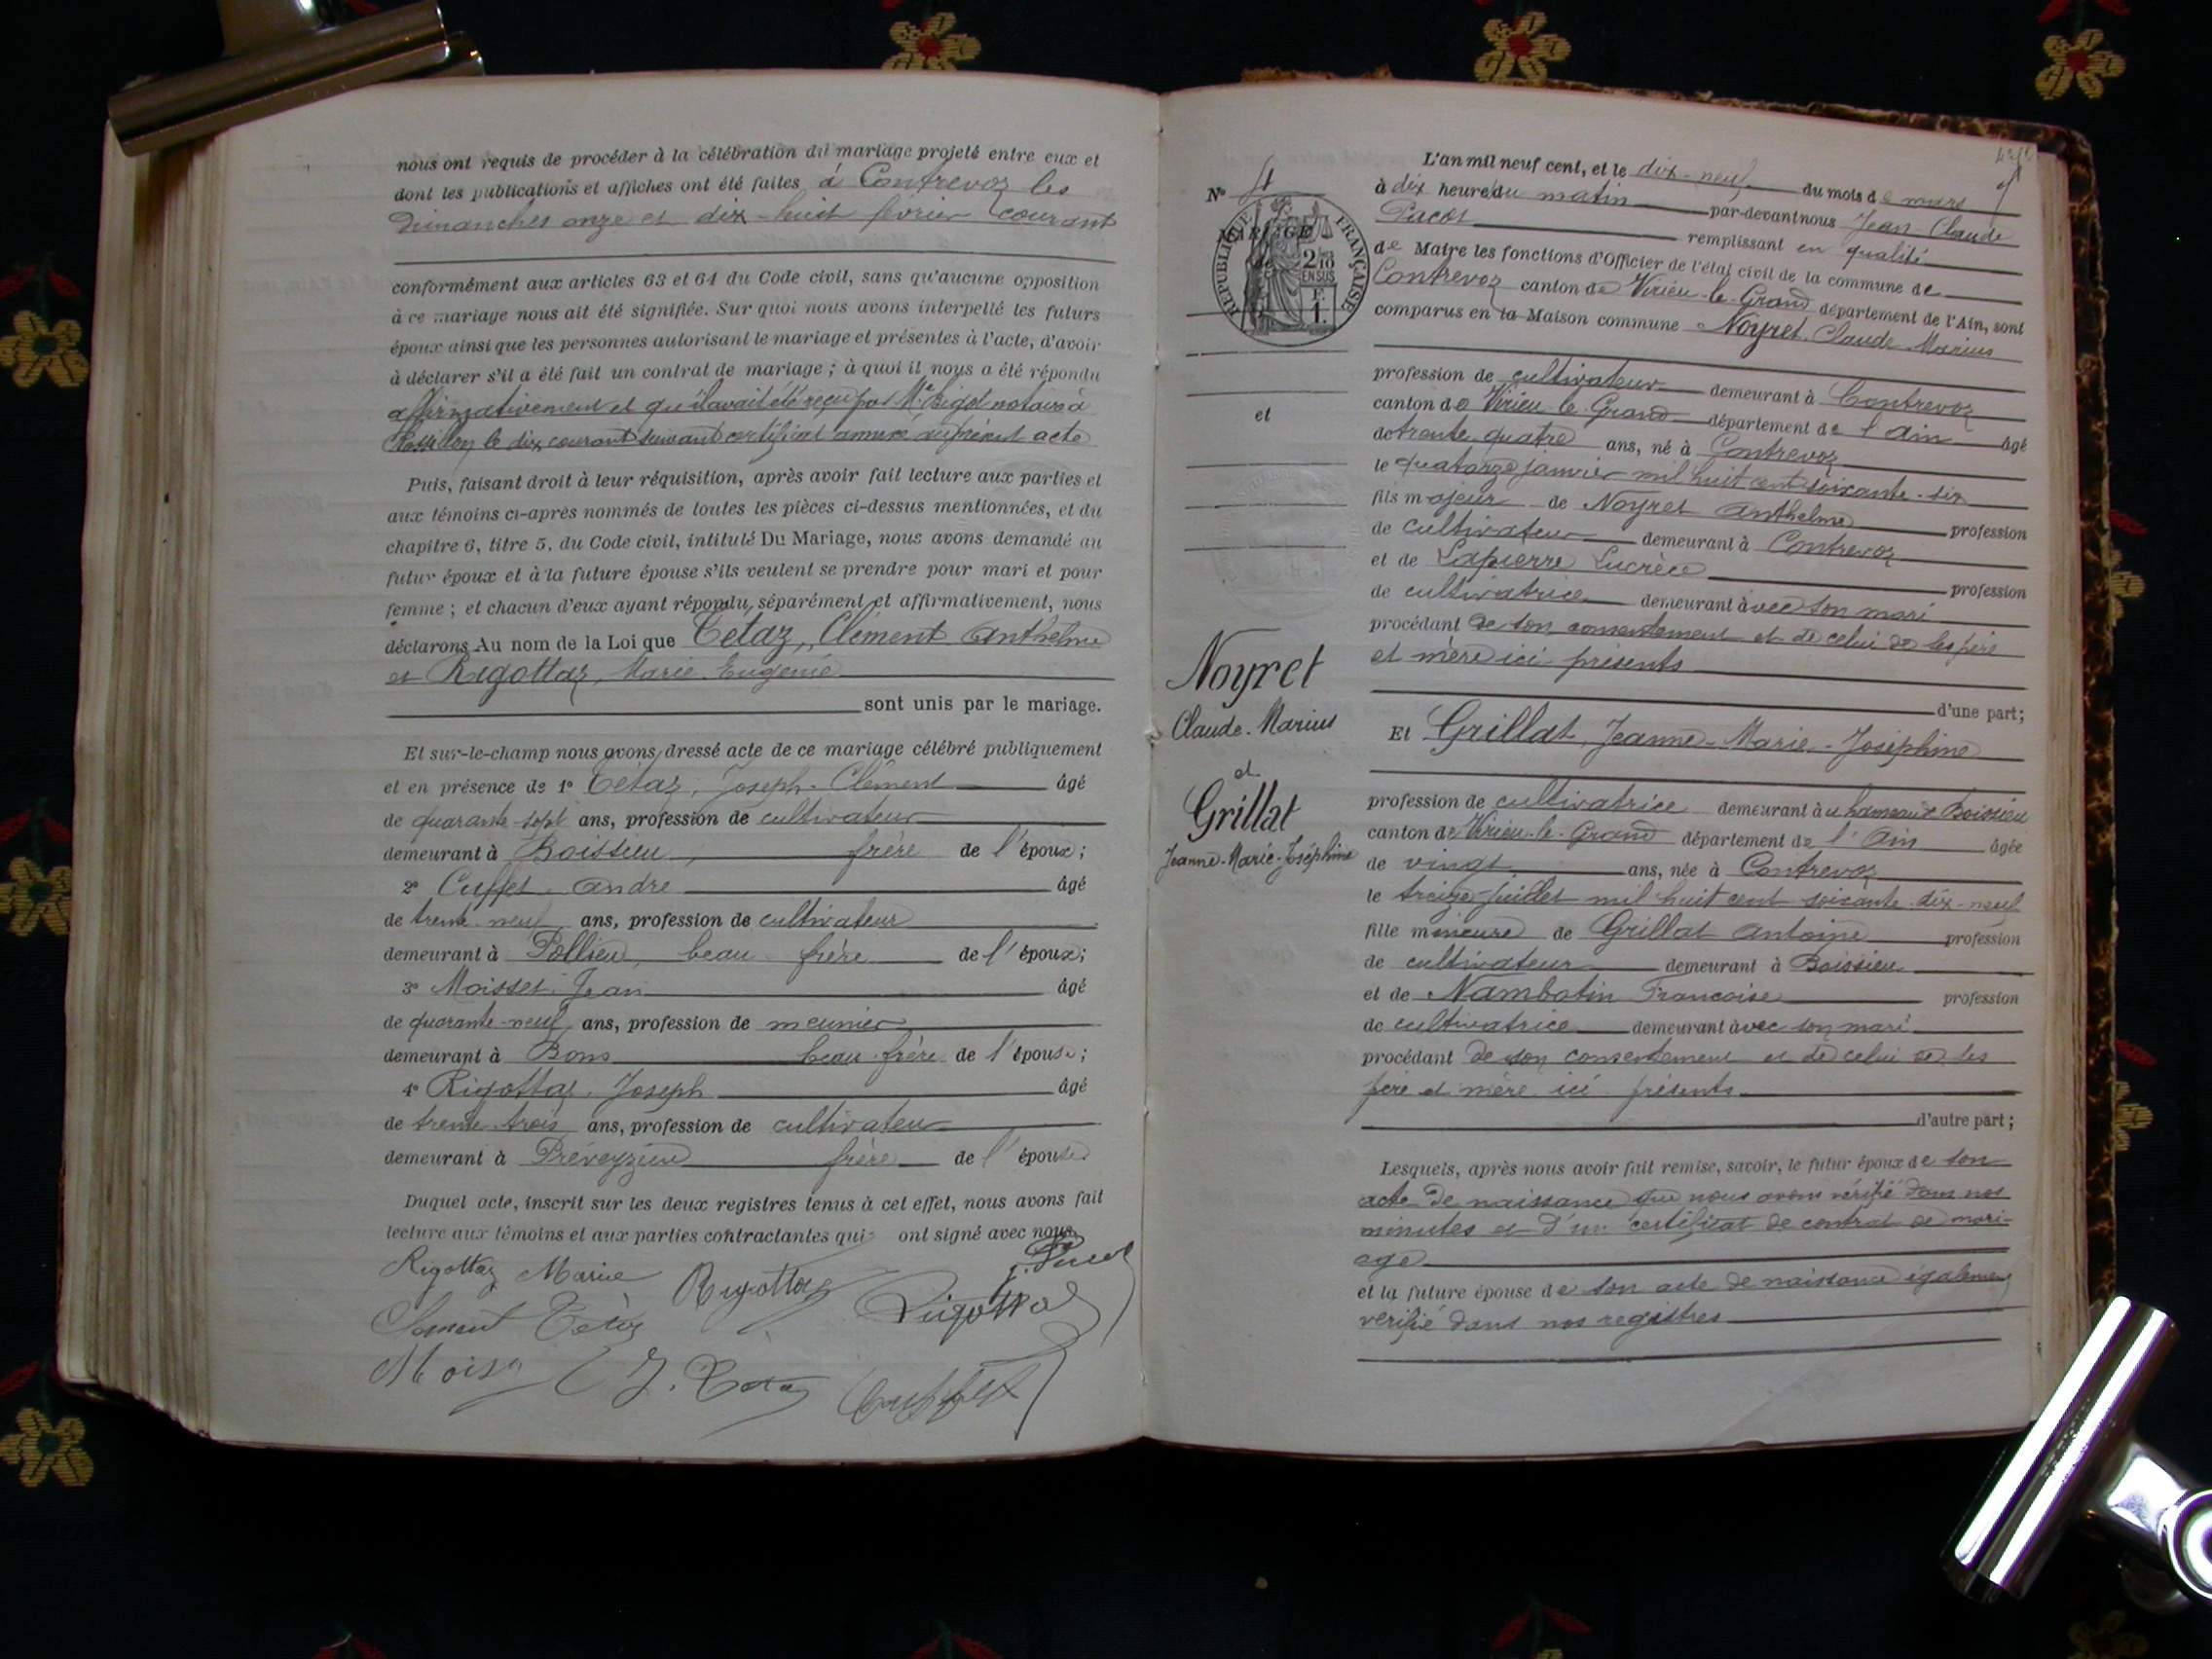 nous ont requis de procéder à la célébration du mariage projeté entre eux et
dont les publications et affiches ont été faites à Contrevoz les
Dimanches onze et dix-huit février courant
conformément aux articles 63 et 64 du Code civil, sans qu'aucune opposition
à ce mariage nous ait été signifiée. Sur quoi nous avons interpellé les futurs
époux ainsi que les personnes autorisant le mariage et présentes à l'acte, d'avoir
à déclarer s'il a été fait un contrat de mariage ; à quoi il nous a été répondu
affirmativement et qu'il avait été reçu par Me Bigot notaire à
Rossillon le dix courant suivant certificat annexé au présent acte
Puis, faisant droit à leur réquisition, après avoir fait lecture aux parties et
aux témoins ci-après nommés de toutes les pièces ci-dessus mentionnées, et du
chapitre 6, titre 5, du Code civil, intitulé Du Mariage, nous avons demandé au
futur époux et à la future épouse s'ils veulent se prendre pour mari et pour
femme ; et chacun d'eux ayant répondu séparément et affirmativement, nous
déclarons Au nom de la Loi que Tétaz, Clément Anthelme
et Rigottaz, Marie Eugénie
sont unis par le mariage.
Et sur-le-champ nous avons dressé acte de ce mariage célébré publiquement
et en présence de 1° Tétaz, Joseph-Clément âgé
de quarante-sept ans, profession de cultivateur
demeurant à Boissieu, frère de l'époux ;
2° Cuffet André âgé
de trente-neuf ans, profession de cultivateur
demeurant à Pollieu, beau frère de l'époux ;
3° Moisset Jean âgé
de quarante-neuf ans, profession de meunier
demeurant à Bons beau-frère de l'épouse ;
4° Rigottaz, Joseph âgé
de trente-trois ans, profession de cultivateur
demeurant à Préveyzieu frère de l'épouse
Duquel acte, inscrit sur les deux registres tenus à cet effet, nous avons fait
lecture aux témoins et aux parties contractantes qui ont signé avec nous
Rigottaz Marie Rigottaz
Tétaz Rigottaz
J. Tétaz Cuffet
N° 4
MARIAGE
de
RÉPUBLIQUE FRANÇAISE
2/10
EN SUS
F.
1.
et
Noyret
Claude-Marius
et
Grillat
Jeanne-Marie-Joséphine
L'an mil neuf cent, et le dix-neuf du mois de mars
à dix heure du matin par-devant nous Jean-Claude
Pacot remplissant en qualité
de Maire les fonctions d'Officier de l'état civil de la commune de
Contrevoz canton de Virieu-le-Grand département de l'Ain, sont
comparus en la Maison commune Noyret Claude Marius
profession de cultivateur demeurant à Contrevoz
canton de Virieu-le-Grand département de l'Ain âgé
de trente quatre ans, né à Contrevoz
le quatorze janvier mil huit cent soixante-six
fils majeur de Noyret Anthelme profession
de cultivateur demeurant à Contrevoz
et de Lapierre Lucrèce profession
de cultivatrice demeurant avec son mari
procédant de son consentement et de celui de ses père
et mère ici présents
d'une part ;
Et Grillat Jeanne-Marie-Joséphine
profession de cultivatrice demeurant au hameau de Boissieu
canton de Virieu-le-Grand département de l'Ain âgée
de vingt ans, née à Contrevoz
le treize juillet mil huit cent soixante-dix-neuf
fille mineure de Grillat Antoine profession
de cultivateur demeurant à Boissieu
et de Nambotin Françoise profession
de cultivatrice demeurant avec son mari
procédant de son consentement et de celui de ses
père et mère ici présents
d'autre part ;
Lesquels, après nous avoir fait remise, savoir, le futur époux de son
acte de naissance que nous avons vérifié dans nos
minutes et d'un certificat de contrat de mari-
age
et la future épouse de son acte de naissance également
vérifié dans nos registres